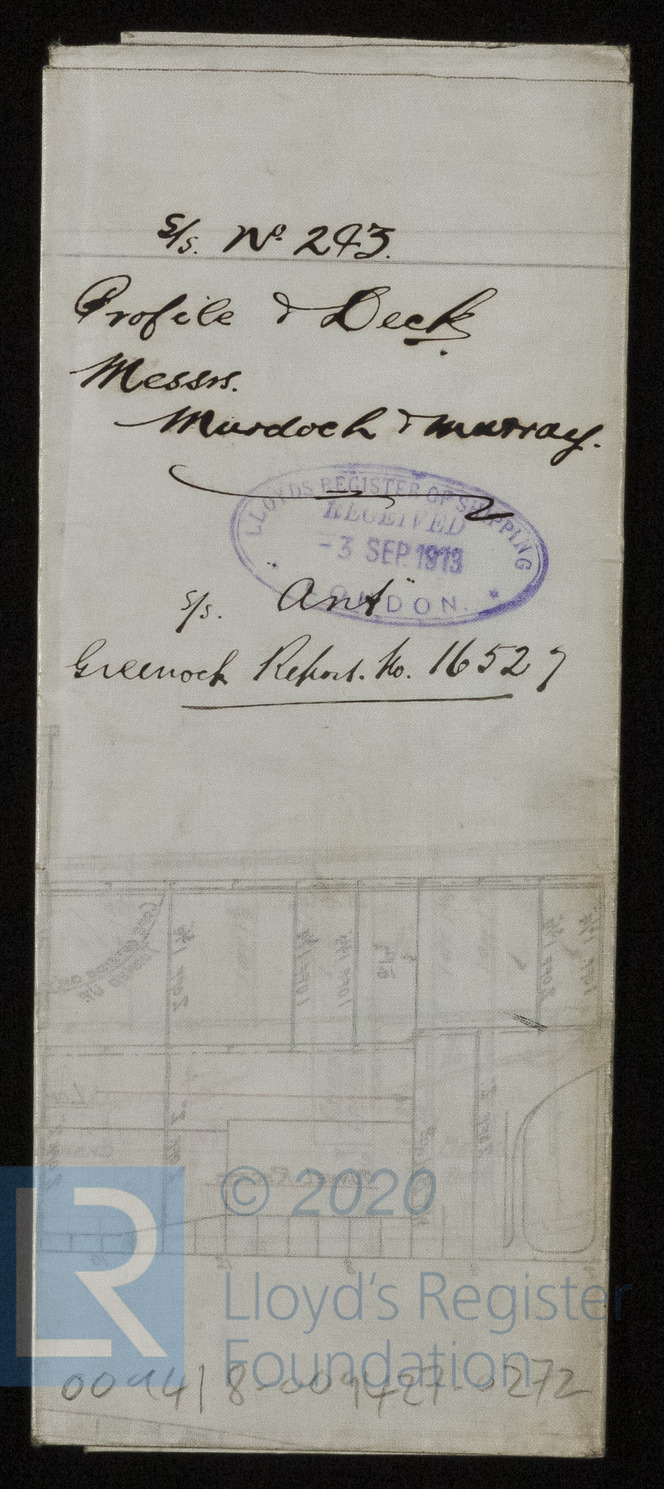 S/S. No 243.
Profile & Deck
Messrs.
Murdoch & Murray.
LLOYDS REGISTER OF SHIPPING
RECEIVED
-3 SEP. 1913
LONDON.
S/S. "Ant"
Greenock Report. No. 16527
© 2020
LR
Lloyd's Register
Foundation
009418-009427-0272